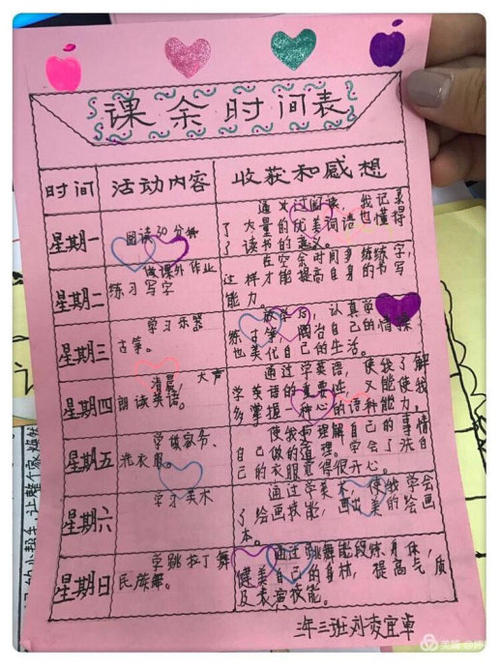 课余时间表
时间 活动内容 收获和感想
星期一
阅读30分钟
通过阅读,我记录
了大量的优美词语也懂得
了读书的意义。
星期二
做课外作业
练习写字
在空余时间多练练字,
这样才能提高自身的书写
能力。
星期三
学习乐器
古筝。
认真学
练古筝,陶冶自己的情操
也美化自己的生活。
星期四
清晨,大声
朗读英语。
通过学英语,使我了解
学英语的重要性,又能使我
多掌握一种心的语种能力。
星期五
学做家务、
洗衣服。
使我理解自己的事情
自己做的道理。学会了洗自
己的衣服觉得很开心。
星期六
学习美术
通过学美术,使我学会
了绘画技能,画出美的绘画
本。
星期日
学跳拉丁舞
民族舞。
通过跳舞能锻炼身体,
健美自己的身材,提高气质
及表演技能。
三年三班刘
的小帮手,让整个家焕然
美篇